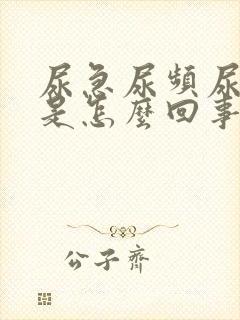 尿急尿频尿
是怎麼回事
公子齊